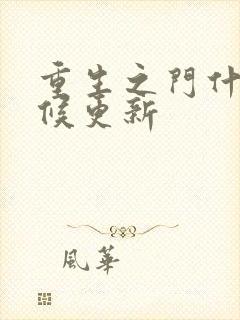 重生之門什
候更新
風華